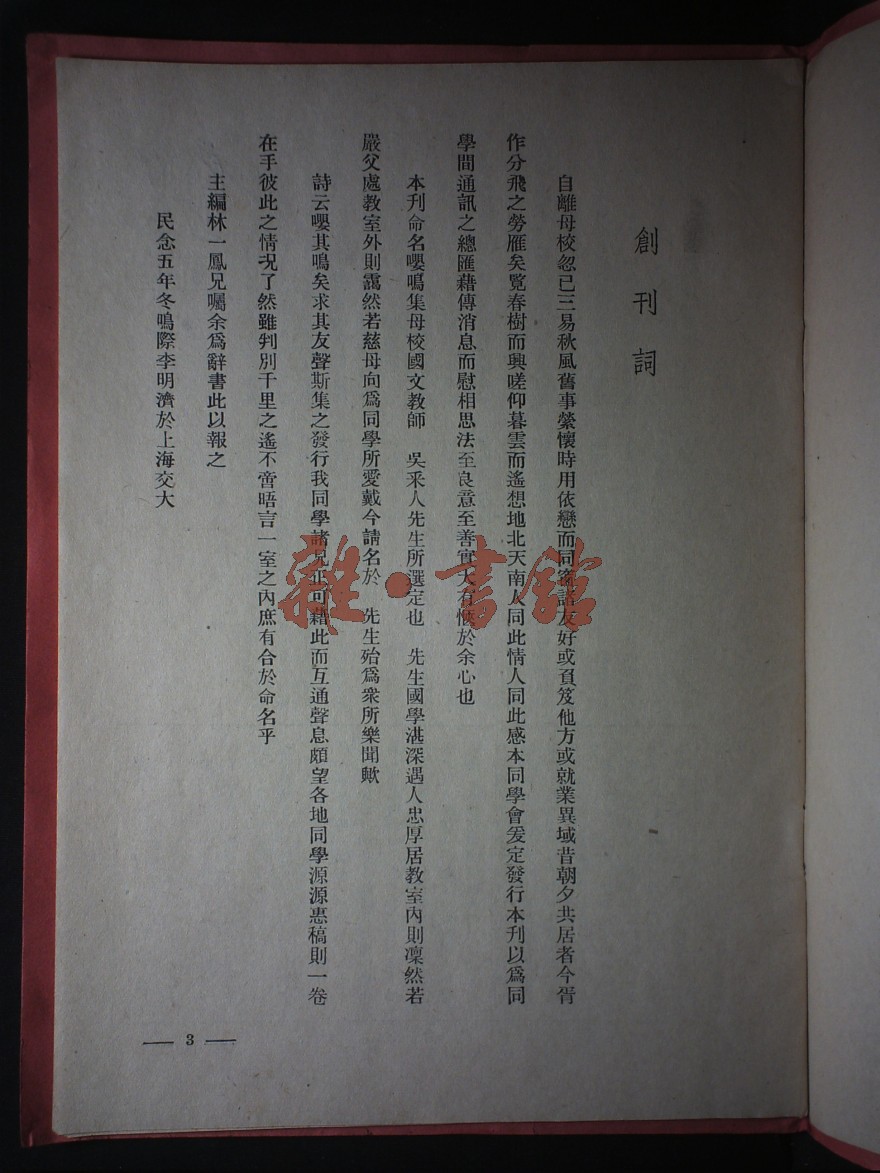 創刊詞
自離母校忽已三易秋風舊事縈懷時用依戀而同窗諸友好或負笈他方或就業異域昔朝夕共居者今胥
作分飛之勞雁矣覧春樹而興嗟仰暮雲而遙想地北天南人同此情人同此感本同學會爰定發行本刊以爲同
學間通訊之總匯藉傳消息而慰相思法至良意至善實大有愜於余心也
本刊命名嚶鳴集母校國文教師 吳釆人先生所選定也 先生國學湛深遇人忠厚居教室內則凜然若
嚴父處教室外則靄然若慈母向爲同學所愛戴今請名於 先生殆爲衆所樂聞歟
詩云嚶其鳴矣求其友聲斯集之發行我同學諸兄正可藉此而互通聲息頗望各地同學源源惠稿則一卷
在手彼此之情况了然雖判別千里之遙不啻晤言一室之內庶有合於命名乎
主編林一鳳兄囑余爲辭書此以報之
民念五年冬鳴際李明濟於上海交大
— 3 —
雜·書館